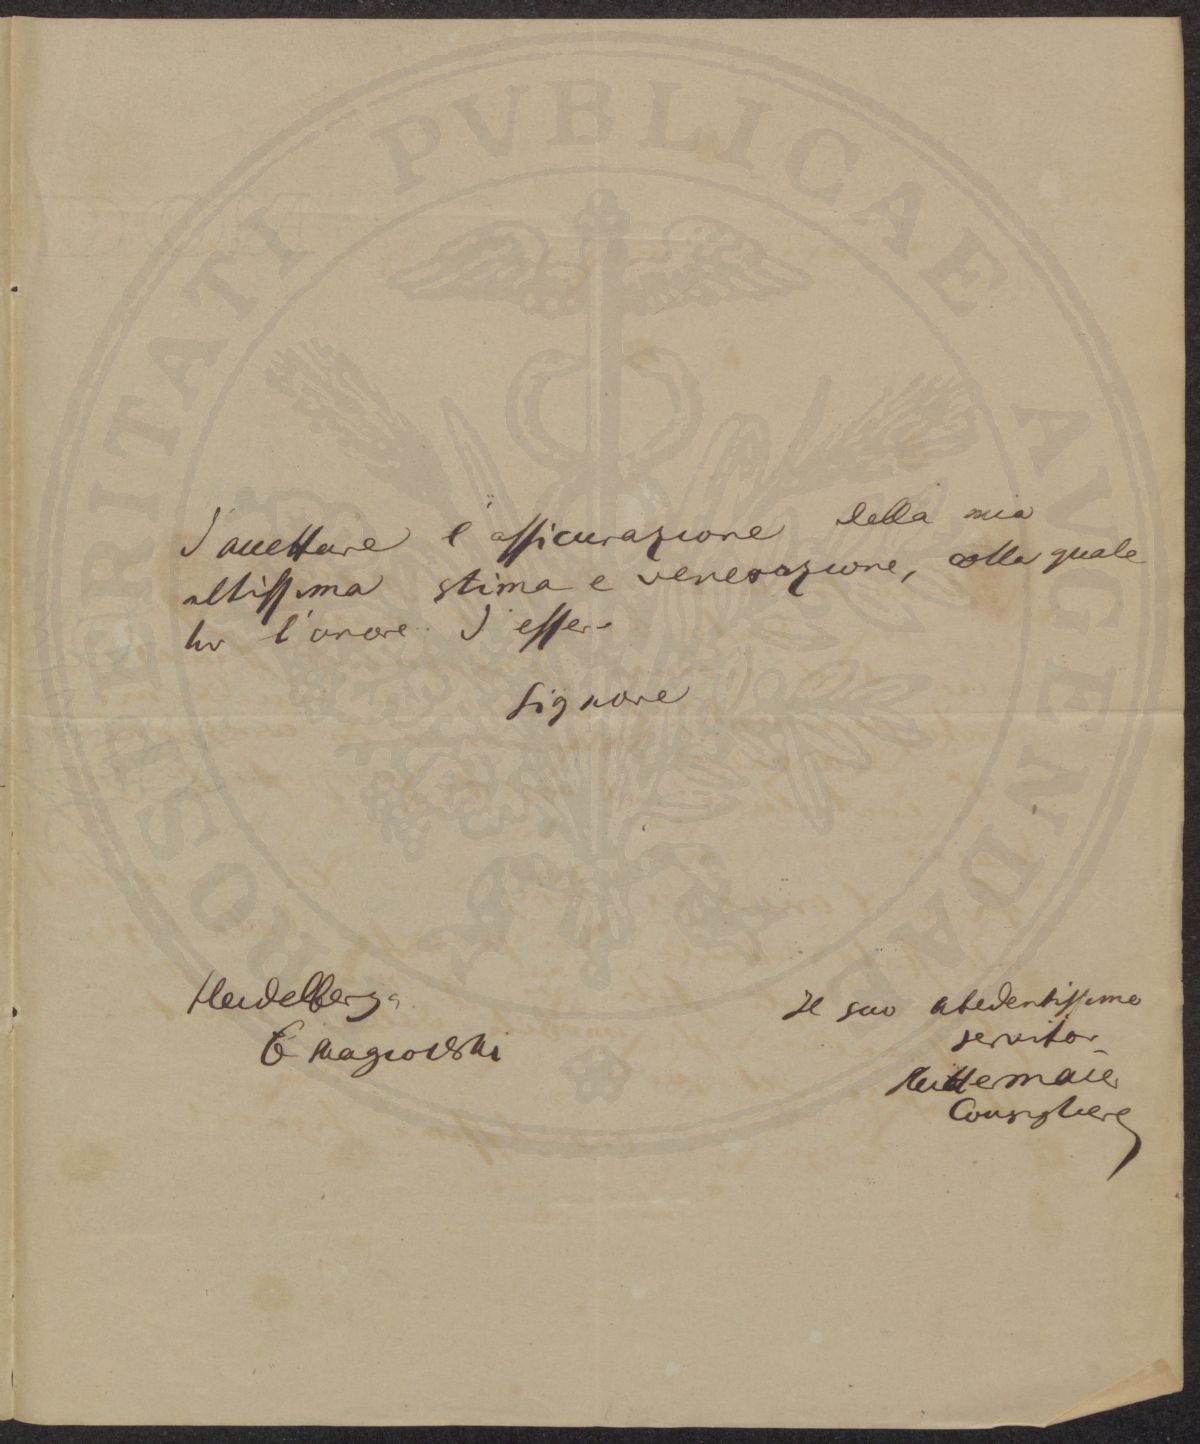 PROSPERITATI PVBLICAE AVGENDAE
d'accettare l'assicurazione della mia
altissima stima e venerazione, colla quale
ho l'onore d'essere
Signore
Heidelberg
6 Maggio
Il suo obedientissimo
servitor
Mittermaier
Consigliere